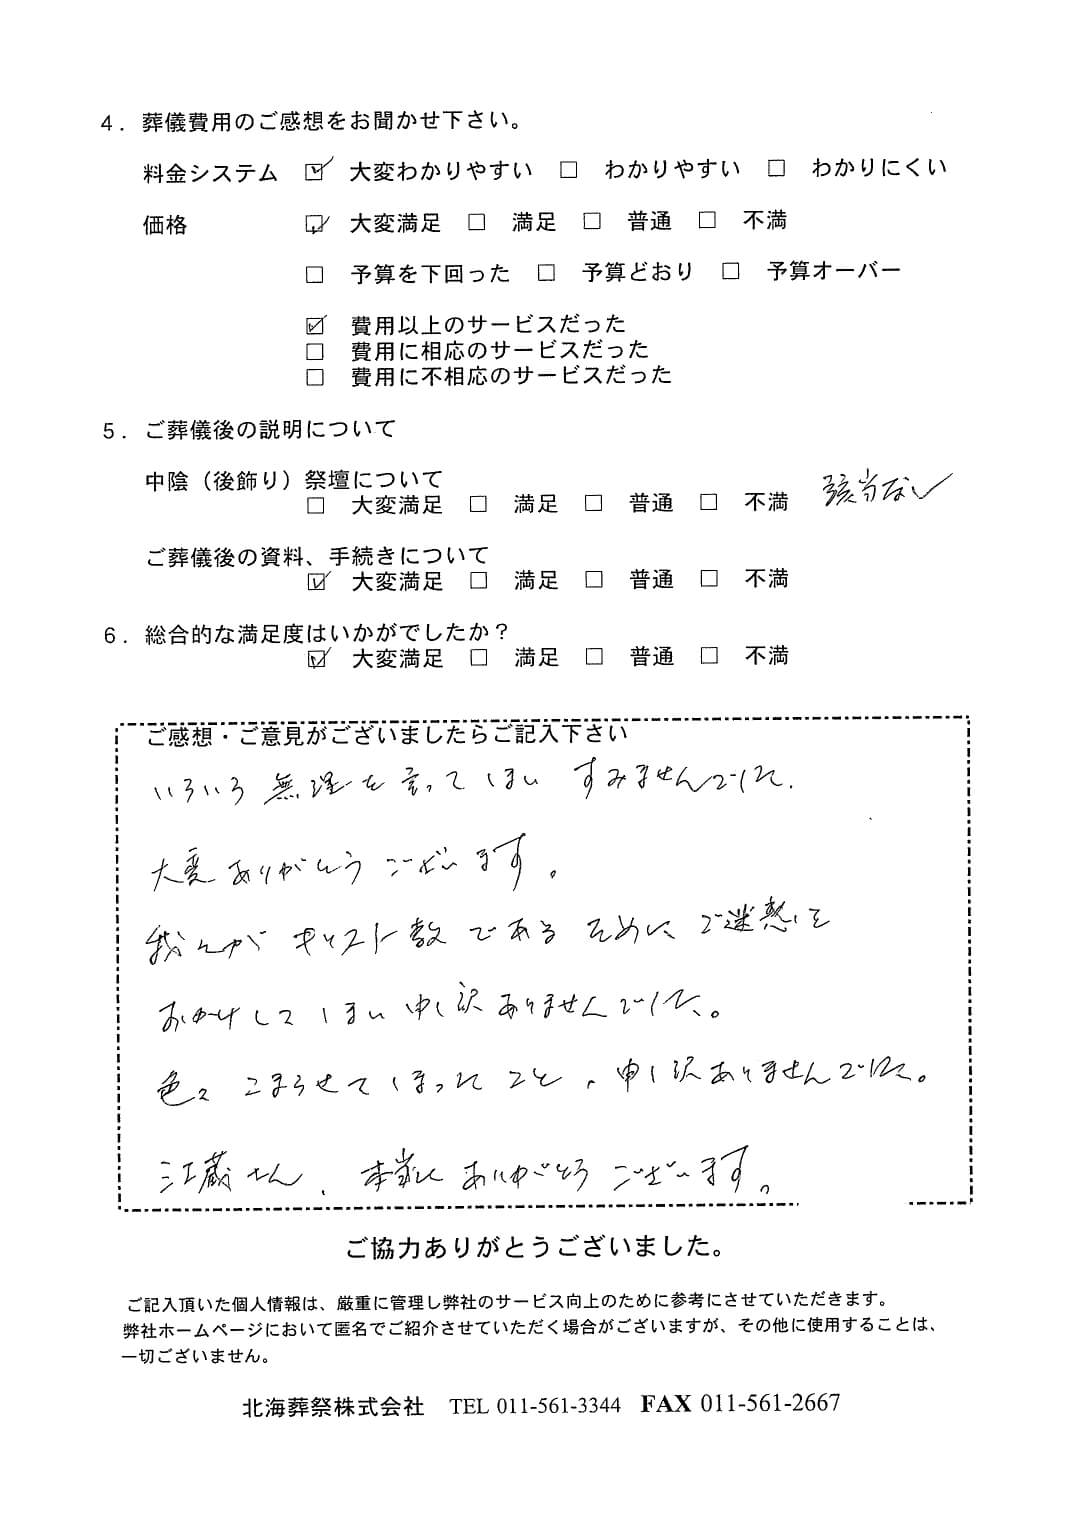 4．葬儀費用のご感想をお聞かせ下さい。
料金システム ☑ 大変わかりやすい □ わかりやすい □ わかりにくい
価格 ☑ 大変満足 □ 満足 □ 普通 □ 不満
□ 予算を下回った □ 予算どおり □ 予算オーバー
☑ 費用以上のサービスだった
□ 費用に相応のサービスだった
□ 費用に不相応のサービスだった
5．ご葬儀後の説明について
中陰（後飾り）祭壇について
□ 大変満足 □ 満足 □ 普通 □ 不満 該当なし
ご葬儀後の資料、手続きについて
☑ 大変満足 □ 満足 □ 普通 □ 不満
6．総合的な満足度はいかがでしたか？
☑ 大変満足 □ 満足 □ 普通 □ 不満
ご感想・ご意見がございましたらご記入下さい
いろいろ無理を言ってしまい すみませんでした.
大変ありがとうございます。
我々が キリスト教であるために ご迷惑を
おかけしてしまい申し訳ありませんでした。
色々こまらせてしまったこと、申し訳ありませんでした。
江蔵さん、本当にありがとうございます。
ご協力ありがとうございました。
ご記入頂いた個人情報は、厳重に管理し弊社のサービス向上のために参考にさせていただきます。
弊社ホームページにおいて匿名でご紹介させていただく場合がございますが、その他に使用することは、
一切ございません。
北海葬祭株式会社 TEL 011-561-3344 FAX 011-561-2667